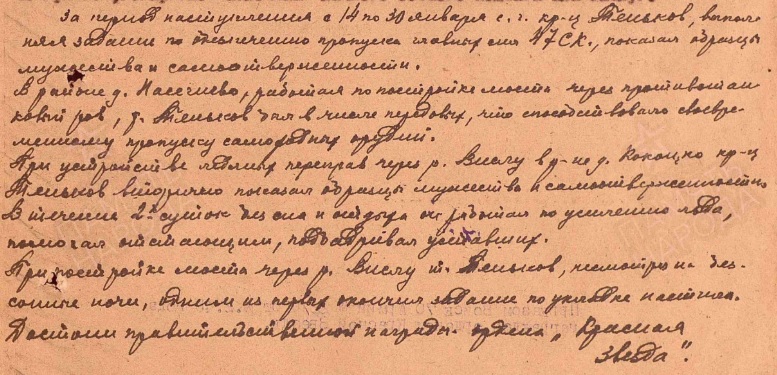 За период наступления с 14 по 30 января с. г. кр-ц Теньков, выпол-
няя задание по обеспечению пропуска главных сил 47 СК., показал образцы
мужества и самоотверженности.
В районе д. Масечиево, работая по постройке моста через противотан-
ковый ров, т. Теньков был в числе передовых, что способствовало своевре-
менному пропуску самоходных орудий.
При устройстве ледяных переправ через р. Вислу в р-не д. Кокоцко кр-ц
Теньков вторично показал образцы мужества и самоотверженности
В течение 2х суток без сна и отдыха он работал по усилению льда,
помогал отстающим, подбадривал уставших.
При постройке моста через р. Вислу т. Теньков, несмотря на без-
сонные ночи, одним из первых окончил задание по укладке настила.
Достоин правительственной награды ордена „Красная
Звезда".